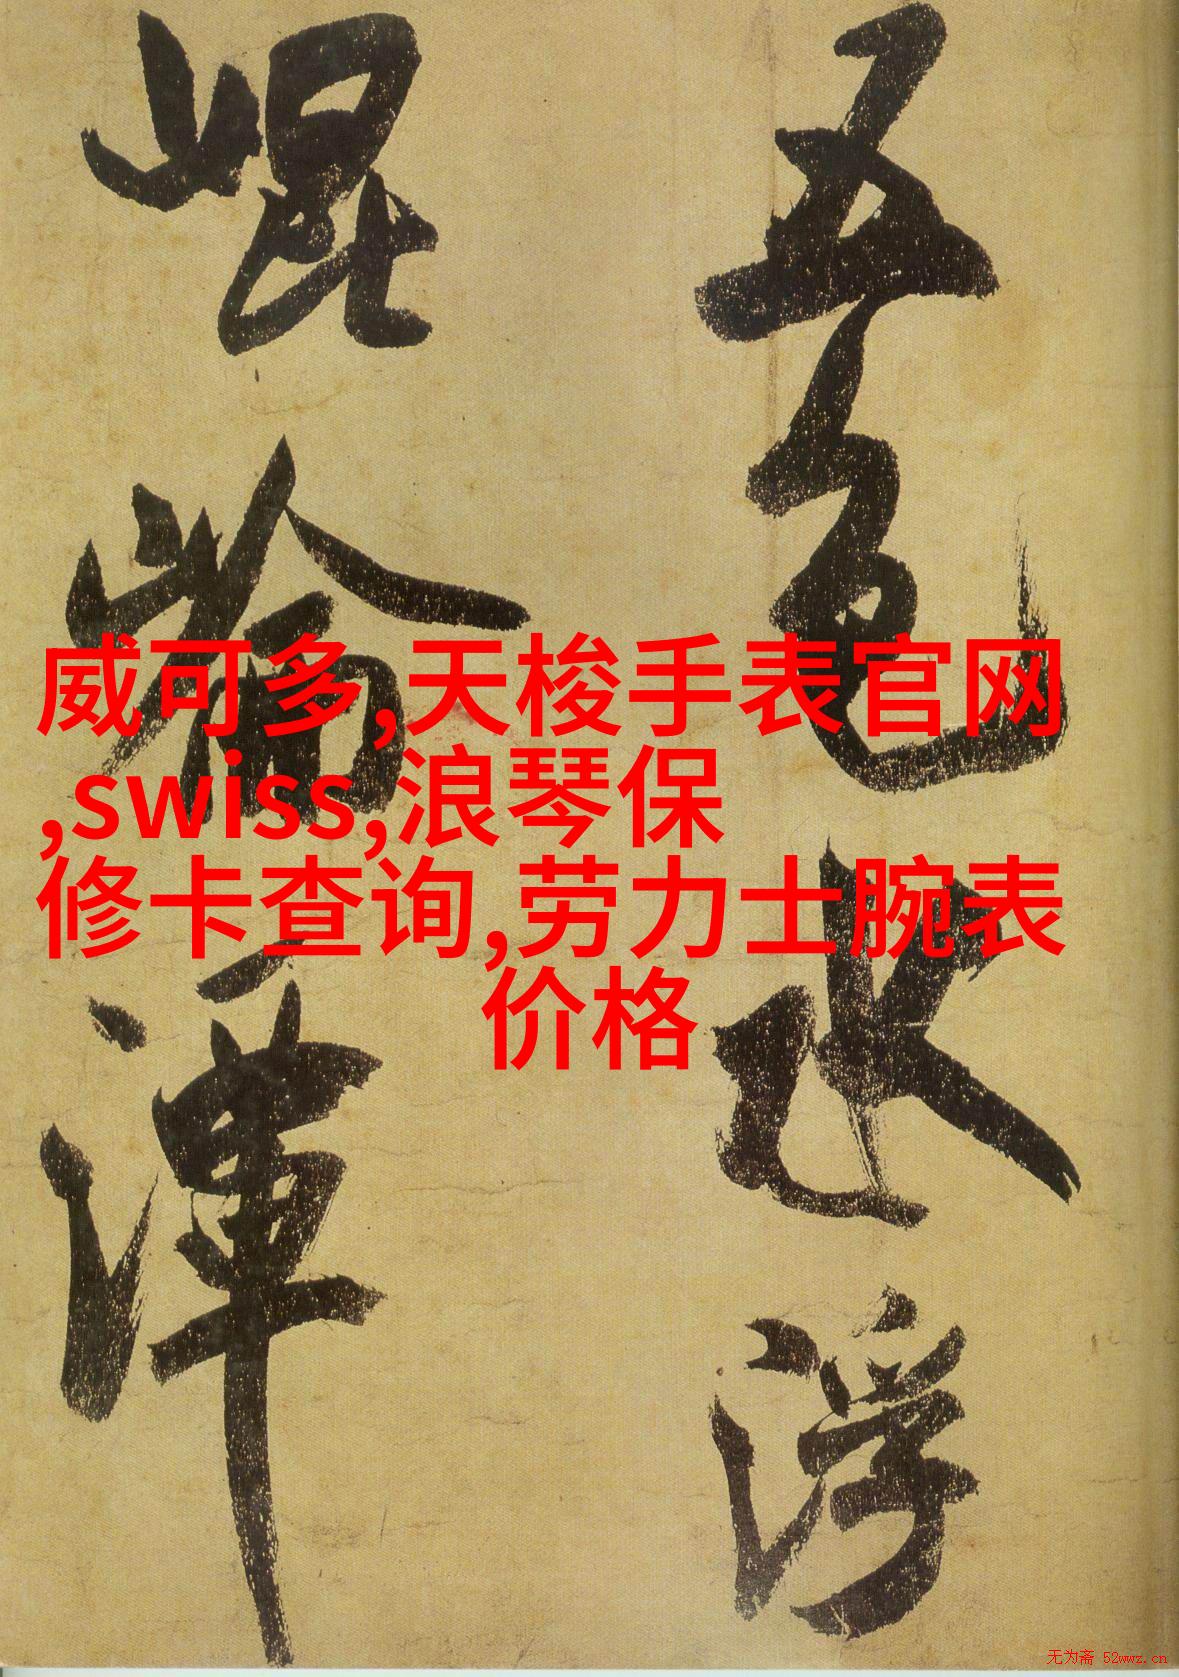 五色水浮
崐崘渾
威可多,天梭手表官网
,swiss,浪琴保
修卡查询,劳力士腕表
价格
无为斋 52wwz.cn